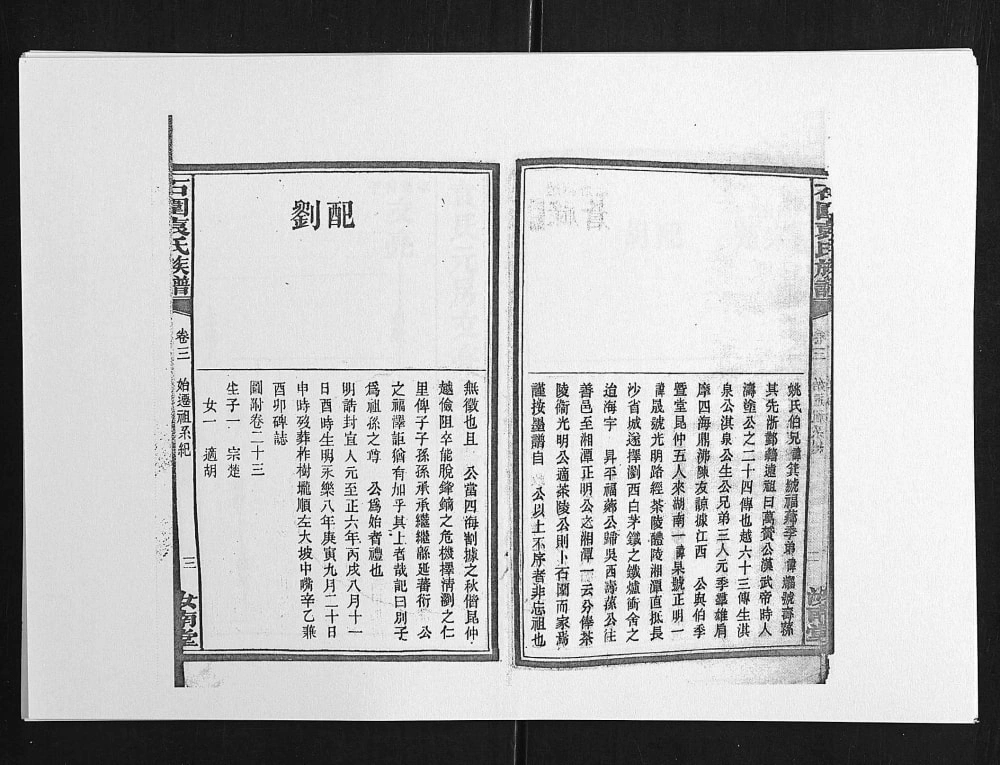 姚氏伯兄諱其號福蓀季弟諱繼號壽蓀
其先浙鄞籍遠祖曰萬賓公漢武帝時人
濤塗公之二十四傳也越六十三傳生淇
泉公淇泉公生公兄弟三人元季羣雄肩
摩四海鼎沸陳友諒據江西 公與伯季
暨堂昆仲五人來湖南一諱杲號正明一
諱晟號光明路經茶陵醴陵湘潭直抵長
沙省城遂擇瀏西白茅鐵之鐵爐衝舍之
迨海宇 昇平福蓀公歸吳西壽蓀公往
善邑至湘潭正明公之湘潭一云分俸茶
陵衞光明公適茶陵公則卜石圍而家焉
謹按墨譜自 公以上不序者非忘祖也
配
劉
無徵也且 公當四海割據之秋偕昆仲
越儉阻卒能脫鋒鏑之危機擇淸瀏之仁
里俾子子孫孫承承繼繼緜延蕃衍 公
之福澤詎猶有加乎其上者哉記曰別子
爲祖孫之尊 公爲始者禮也
明誥封宜人元至正六年丙戌八月十一
日酉時生明永樂八年庚寅九月二十日
申時歿葬柞樹壠順左大坡中嘴辛乙兼
酉卯碑誌
圖附卷二十三
生子一 宗楚
女一 適胡
石圍袁氏族譜
卷三 始遷祖系紀
三
汝南堂